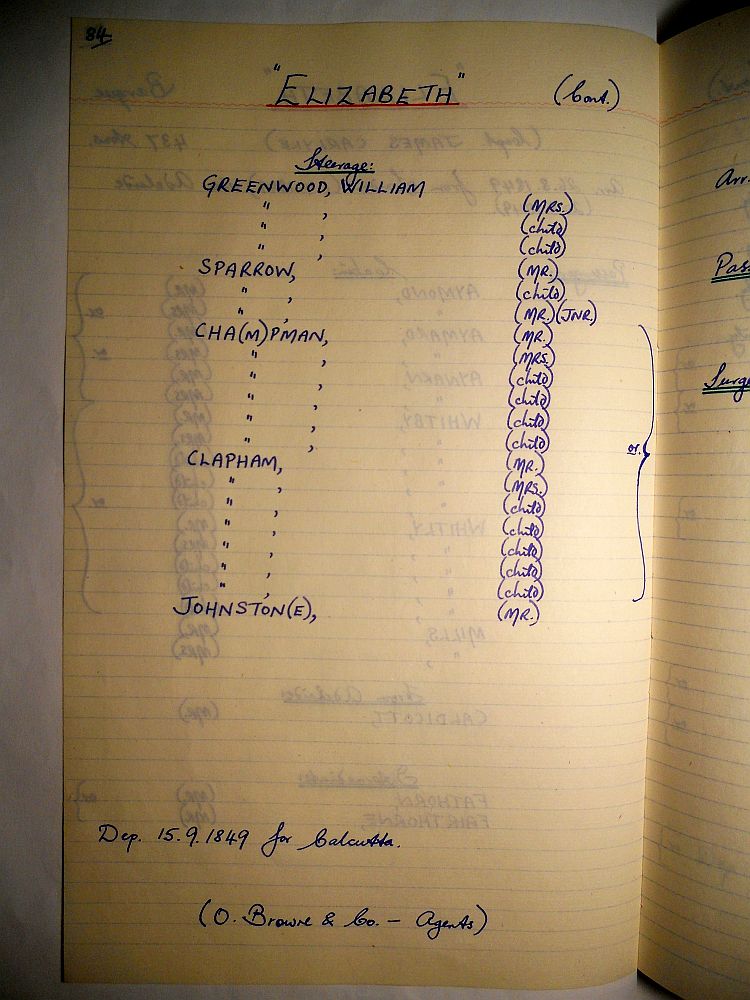 84
"ELIZABETH" (Cont.)
Steerage:
GREENWOOD, WILLIAM
" , (MRS.)
" , (child)
" , (child)
SPARROW, (MR.)
" , (child)
" , (MR.) (JNR.)
CHA(M)PMAN, (MR.)
" , (MRS.)
" , (child)
" , (child)
" , (child)
" , (child)
or.
CLAPHAM, (MR.)
" , (MRS.)
" , (child)
" , (child)
" , (child)
" , (child)
" , (child)
JOHNSTON(E), (MR.)
Dep. 15.9.1849 for Calcutta.
(O. Browne & Co. – Agents)
Arr.
Pas
Surge